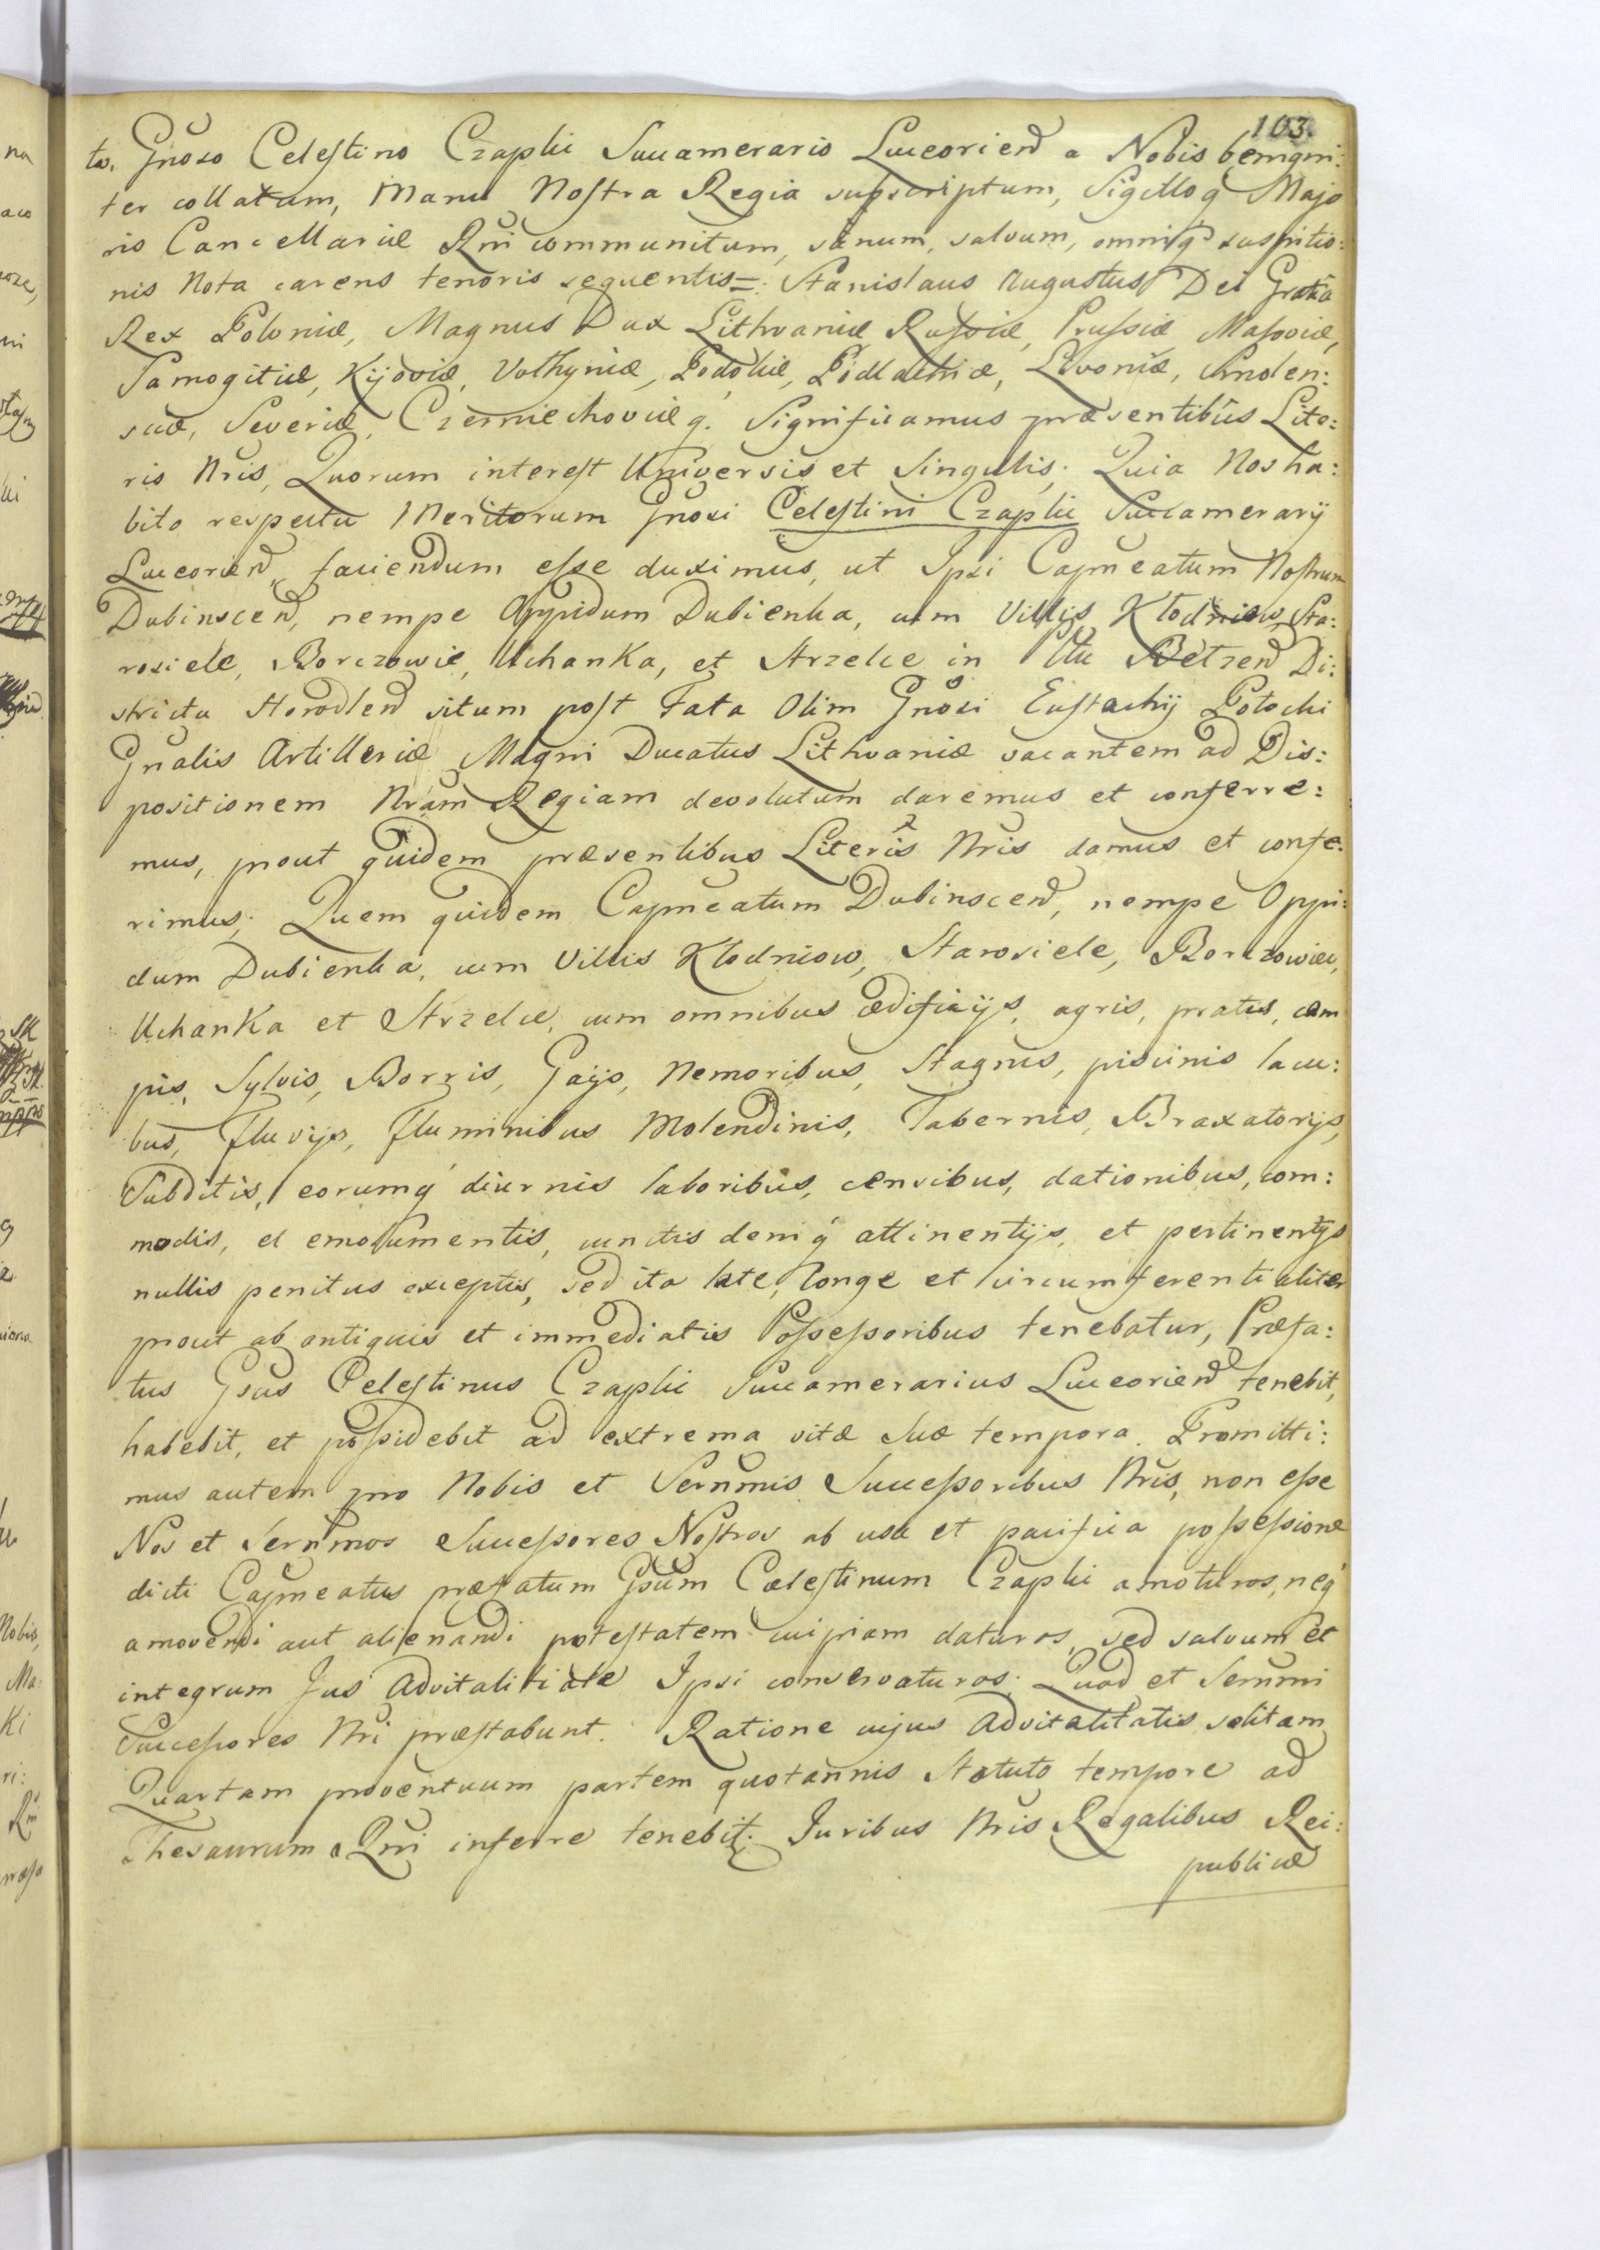 103.
to. Gnoso Celestino Czaplic Succamerario Luceorien a Nobis benigni:
ter collatum, Manu Nostra Regia supscriptum, Sigilloq Majo
ris Cancellariæ Rni communitum, sanum, salvum, omniq suspitio:
nis Nota carens tenoris sequentis =: Stanislaus Augustus Dei Gratia
Rex Poloniæ, Magnus Dux Lithvaniæ Russiæ, Prussiæ Masoviæ,
Samogitiæ, Kijoviæ, Volhyniæ, Podoliæ, Podlachiæ, Livoniæ, Smolen:
sciæ, Severiæ, Czerniechoviæq. Significamus præsentibus Lite:
ris Nris, Quorum interest Universis et Singulis. Quia Nos ha:
bito respectu Meritorum Gnosi Celestini Czaplic Succamerarij
Luceorien, faciendum esse duximus, ut Ipsi Capneatum Nostrum
Dubinscen, nempe Oppidum Dubienka, cum Villis Kłodniow, Sta:
rosiele, Borczowie, Uchanka, et Strzelce in Pttu Betzen Di:
strictu Horodlen situm post Fata Olim Gnosi Eustachij Potocki
Gnalis Artilleriæ Magni Ducatus Lithvaniæ vacantem ad Dis:
positionem Nram Regiam devolutum daremus et conferre:
mus, prout quidem præsentibus Literis Nris damus et confe:
rimus; Quem quidem Capneatum Dubinscen, nempe Oppi:
dum Dubienka, cum Villis Kłodniow, Starosiele, Borczowiec,
Uchanka et Strzelce, cum omnibus ædificijs, agris, pratis, cam
pis, Sylvis, Borris, Gaijs, Nemoribus, Stagnis, piscinis lacu:
bus, fluvijs, fluminibus Molendinis, Tabernis, Braxatorijs,
Subditis, eorumq diurnis laboribus, censibus, dationibus, com:
modis, et emolumentis, cunctis deniq attinentijs, et pertinentijs
nullis penitus exceptis, sed ita late, longe et circumferentialiter
prout ab antiquis et immediatis Possessoribus tenebatur, Præfa:
tus Gsus Celestinus Czaplic Succamerarius Luceorien tenebit,
habebit, et possidebit ad extrema vitæ Suæ tempora. Promitti:
mus autem pro Nobis et Sernmis Successoribus Nris, non esse
Nos et Sernmos Successores Nostros ab usu et pacifica possessione
dicti Capneatus præfatum Gsum Cælestinum Czaplic amoturos, neq
amovendi aut alienandi potestatem cuipiam daturos, sed salvum et
integrum Jus Advitalitiale Ipsi conservaturos. Quod et Sernmi
Successores Nri præstabunt. Ratione cujus Advitalitatis solitam
Quartam proventuum partem quotannis Statuto tempore ad
Thesaurum Rni inferre tenebit. Juribus Nris Regalibus Rei:
publicæ